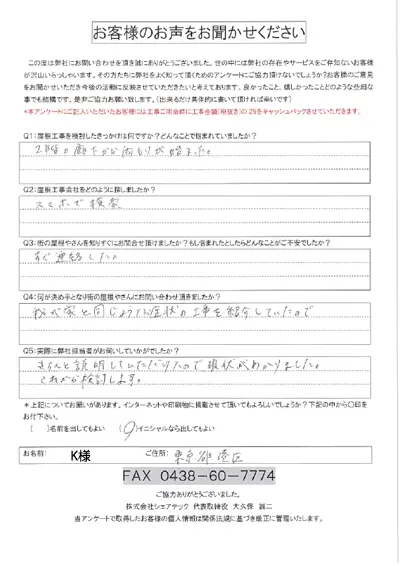 お客様のお声をお聞かせください
この度は弊社にお問い合わせを頂き誠にありがとうございました。世の中には弊社の存在やサービスをご存知ないお客様
が沢山いらっしゃいます。その方たちに弊社をよく知って頂くためのアンケートにご協力頂けないでしょうか？お客様のご意見
をお聞かせいただき今後の活動に反映させていただきたいと考えております。良かったこと、嬉しかったことどのような些細な
事でも結構です。是非ご協力お願い致します。（出来るだけ具体的に書いて頂ければ幸いです）
*本アンケートにご記入いただいたお客様には工事ご用命時に工事金額(税抜き)の2%をキャッシュバックさせていただきます。
Q1:屋根工事を検討したきっかけは何ですか？どんなことで悩まれていましたか？
2階の廊下から雨もりが始まった。
Q2:屋根工事会社をどのように探しましたか？
スマホで検索
Q3:街の屋根やさんを知りすぐにお問合せ頂けましたか？もし悩まれたとしたらどんなことがご不安でしたか？
すぐ連絡した。
Q4:何が決め手となり街の屋根やさんにお問い合わせ頂きましたか？
我が家と同じような症状の工事を紹介していたので
Q5:実際に弊社担当者がお伺いしていかがでしたか？
きちんと説明していただけたので現状がわかりました。
これから検討します。
＊上記についてお願いがあります。インターネットや印刷物に掲載させて頂いてもよろしいでしょうか？下記の中から〇印を
お付下さい。
( )名前を出してもよい (〇)イニシャルなら出してもよい
お名前: K様 ご住所: 東京都港区
FAX 0438-60-7774
ご協力ありがとうございました。
株式会社シェアテック 代表取締役 大久保 誠二
当アンケートで取得したお客様の個人情報は関係法規に基づき厳正に管理いたします。